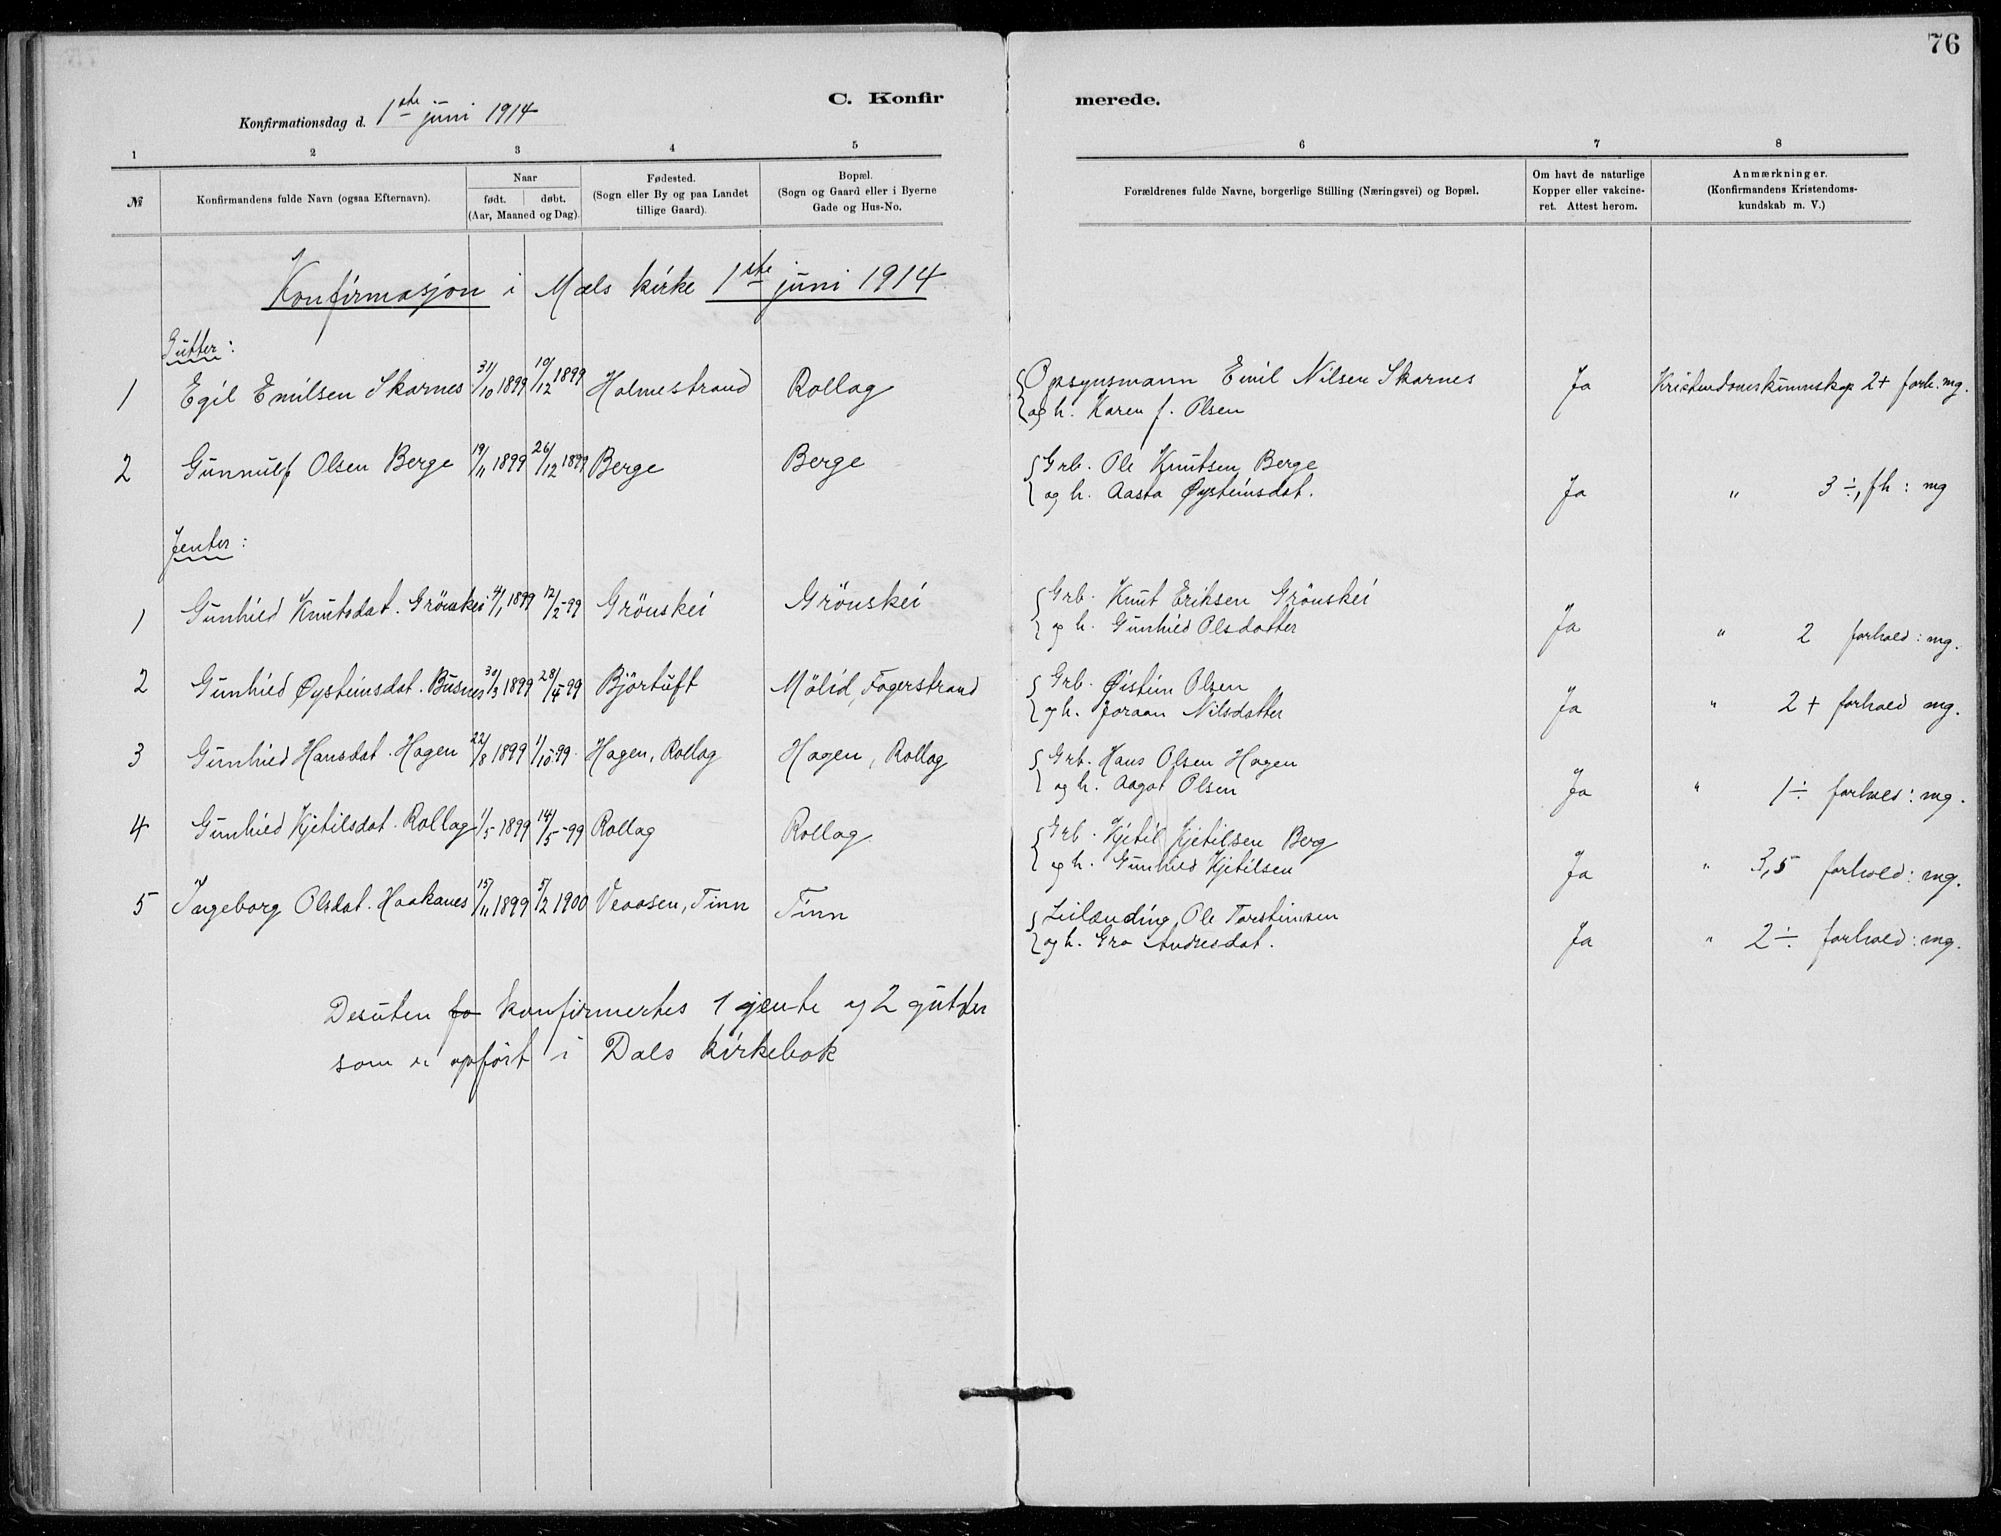 76
C. Konfirmerede.
Konfirmationsdag d. 1ste juni 1914
1 2 3 4 5 6 7 8
№ Konfirmandens fulde Navn (ogsaa Efternavn). Naar født. døbt. (Aar, Maaned og Dag). Fødested. (Sogn eller By og paa Landet tillige Gaard). Bopæl. (Sogn og Gaard eller i Byerne Gade og Hus-No. Forældrenes fulde Navne, borgerlige Stilling (Næringsvei) og Bopæl. Om havt de naturlige Kopper eller vakcineret. Attest herom. Anmærkninger. (Konfirmandens Kristendomskundskab m. V.)
Konfirmasjon i Mæls kirke 1ste juni 1914
Gutter:
1 Egil Emilsen Skarnes 31/10 1899 10/12 1899 Holmestrand Rollag Opsynsmann Emil Nilsen Skarnes Ja Kristendomskunnskap 2+ forh. mg.
og h. Karen f. Olsen
2 Gunnulf Olsen Berge 19/11 1899 26/12 1899 Berge Berge Grb. Ole Knutsen Berge
og h. Aasta Øysteinsdat. Ja " 3 ÷, fh : mg
Jenter:
1 Gunhild Knutsdat. Grönskei 4/1 1899 12/2-99 Grönskei Grönskei Grb. Knut Eriksen Grönskei
og h. Gunhild Olsdatter Ja " 2 forhold : mg.
2 Gunhild Øysteinsdat. Busnes 30/3 1899 28/4-99 Björtuft Mölid, Fagerstrand Grb. Øistein Olsen
og h. Joraan Nilsdatter Ja " 2 + forhold mg.
3 Gunhild Hansdat. Hagen 22/8 1899 1/10-99 Hagen, Rollag Hagen, Rollag Grb. Hans Olsen Hagen
og h. Aagot Olsen Ja " 1 ÷ forhold : mg.
4 Gunhild Kjetilsdat. Rollag 1/5 1899 14/5-99 Rollag Rollag Grb. Kjetil Kjetilsen Berg
og h. Gunhild Kjetilsen Ja " 3,5 forhold : mg.
5 Ingeborg Olsdat. Haakanes 15/11 1899 5/2 1900 Veaasen, Tinn Tinn Leilænding, Ole Torsteinsen
og h. Gro Andresdat. Ja " 2 ÷ forhold : mg.
Desuten fo konfirmertes 1 gjente og 2 gutter
som er opført i Dals kirkebok